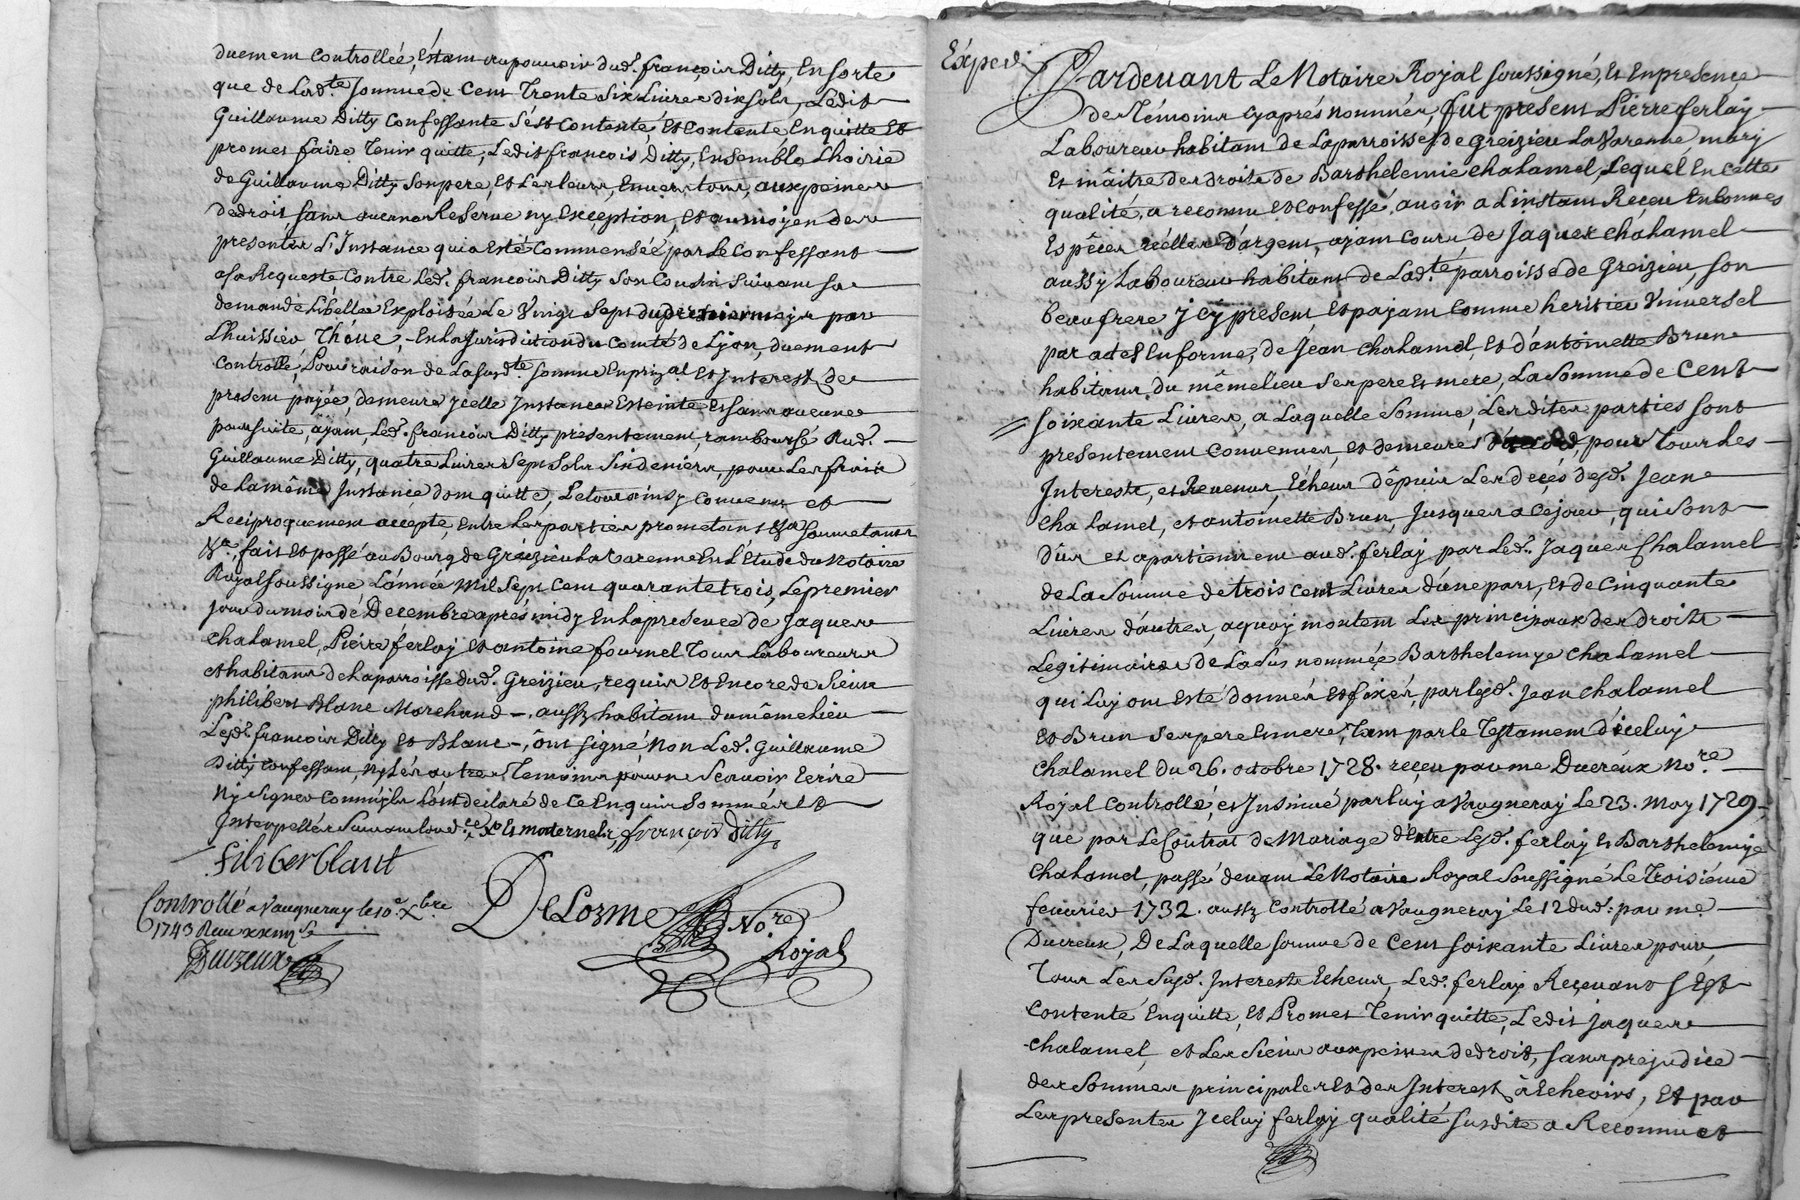 duement Controllée, Estant au pouvoir dud. françois Ditty, En sorte
que de Lad.te somme de Cent Trente Six Livres dix sols, Ledit
Guillaume Ditty Confessante s'est Contenté et Contente En quitte Et
promet faire Tenir quitte, Ledit françois Ditty, Ensemble Lhoirie
de Guillaume Ditty Son pere, Et Les leurs, Envers tous, aux peines
de droit sans aucune Reserve ny Exception, Et au moyen des
presentes L'Instance qui a Esté Commensée par Le Confessant
a sa Requeste Contre Led. françois Ditty Son Cousin Suivant sa
demande Libellée Exploitée Le Vingt Sept du par
Lhuissier Thöue, En la Jurisdiction du Comté de Lyon, duement
Controllé, Pour raison de La susd.te somme En prip.al Et Interest de
present payée, demeure Jcelle Instance Esteinte Et sans aucune
poursuite, ayant Led. françois Ditty presentement, rambourse Aud.
Guillaume Ditty, quatre Livres Sept Sols Six deniers, pour Les frais
de La même Instance dont quitte, Le tout ainsy Convenu et
Reciproquement accepté, Entre Les parties prometans &a Soumetans
&a, fait Et passé au Bourg de Gréizieu La Varenne En L'Etude du Notaire
Royal Soussigné L'année Mil Sept Cent quarante trois, Le premier
jour du mois de Decembre aprés midy En la presence de Jaques
chalamel, Pierre ferlay et antoine fournel Tous Laboureurs
et habitans de La parroisse dud. Greizieu, requis Et Encore de Sieur
philibert Blanc Marchand - aussy habitant du même lieu
Lesd. françois Ditty Et Blanc -, ônt signé Non Led. Guillaume
Ditty Confessant, ny Les autres Temoins pour ne Scavoir Ecrire
Ny Signer Comm'ils L'ônt declaré de Ce Enquis Sommés Et
Interpellés Suivant Lord.ce Xe Et maternels, françois Ditty
filiber blant
Controllé a Vaugneray le 10e Xbre
1743 Recu xxiiii s.
Ducreux
DeLozme No.re
Royal
Expedi
Pardevant Le Notaire Royal soussigné, Et En presence
de Témoins Cy aprés nommés, fut present Pierre ferlay
Laboureur habitant de La parroisse de Greizieu La Varenne, mary
Et mâitre des droits de Barthelemie chalamel, Lequel En Cette
qualité, a reconnu Et Confessé, avoir a L'instant Reçeu En bonnes
Espêces réelles D'argent, ayant Cours, de Jaques chalamel
aussy Laboureur habitant de Lad.te parroisse de Greizieu, son
beau frere Jcy present Et payant Comme heritier Universel
par actes En forme, de Jéan chalamel, Et d'antoinette Brun
habitans du même lieu Ses pere Et mere, La Somme de Cent
soixante Livres, a Laquelle Somme, Lesdites parties sont
presentement Convenues, et demeurés d'acord, pour Tous Les
Interests, et Revenus, Echeus dêpuis Les deçés desd. Jean
chalamel, et antoinette Brun, Jusques a Cejour, qui sont
dûs et apartiennent aud. ferlay par Led. Jaques Chalamel
de La Somme de trois Cent Livres d'une part, Et de Cinquante
Livres d'autres, a quoy montent Les principaux des droits
Legitimaires de La sus nommée Barthelemye Chalamel
qui Luy ont esté donnés Et fixés, par Lesd. Jean chalamel
Et Brun Ses pere Et mere, Tant par le Testament d'iceluy
Chalamel du 26. octobre 1728. reçeu par me Ducreux No.re
Royal Controllé, et Insinué par Luy a Vaugneray Le 23. May 1729,
que par Le Contrat de Mariage d'Entre Led. ferlay Et Barthelemye
Chalamel, passé devant Le Notaire Royal Soussigné Le Troisiéme
feuvrier 1732. aussy Controllé a Vaugneray Le 12 dud. par me.
Ducreux, De Laquelle somme de Cent soixante Livres pour,
Tous Les Susd. Interests Echeus, Led. ferlay Reçevant s'Est
Contenté Enquitte, et Promet Tenir quitte, Ledit Jaques
chalamel, et Les Siens aux peines de droit, sans prejudice
des Sommes principales Et des Interests, â Echeoirs, Et par
Les presentes Jceluy ferlay qualité susdite a Reconnu et